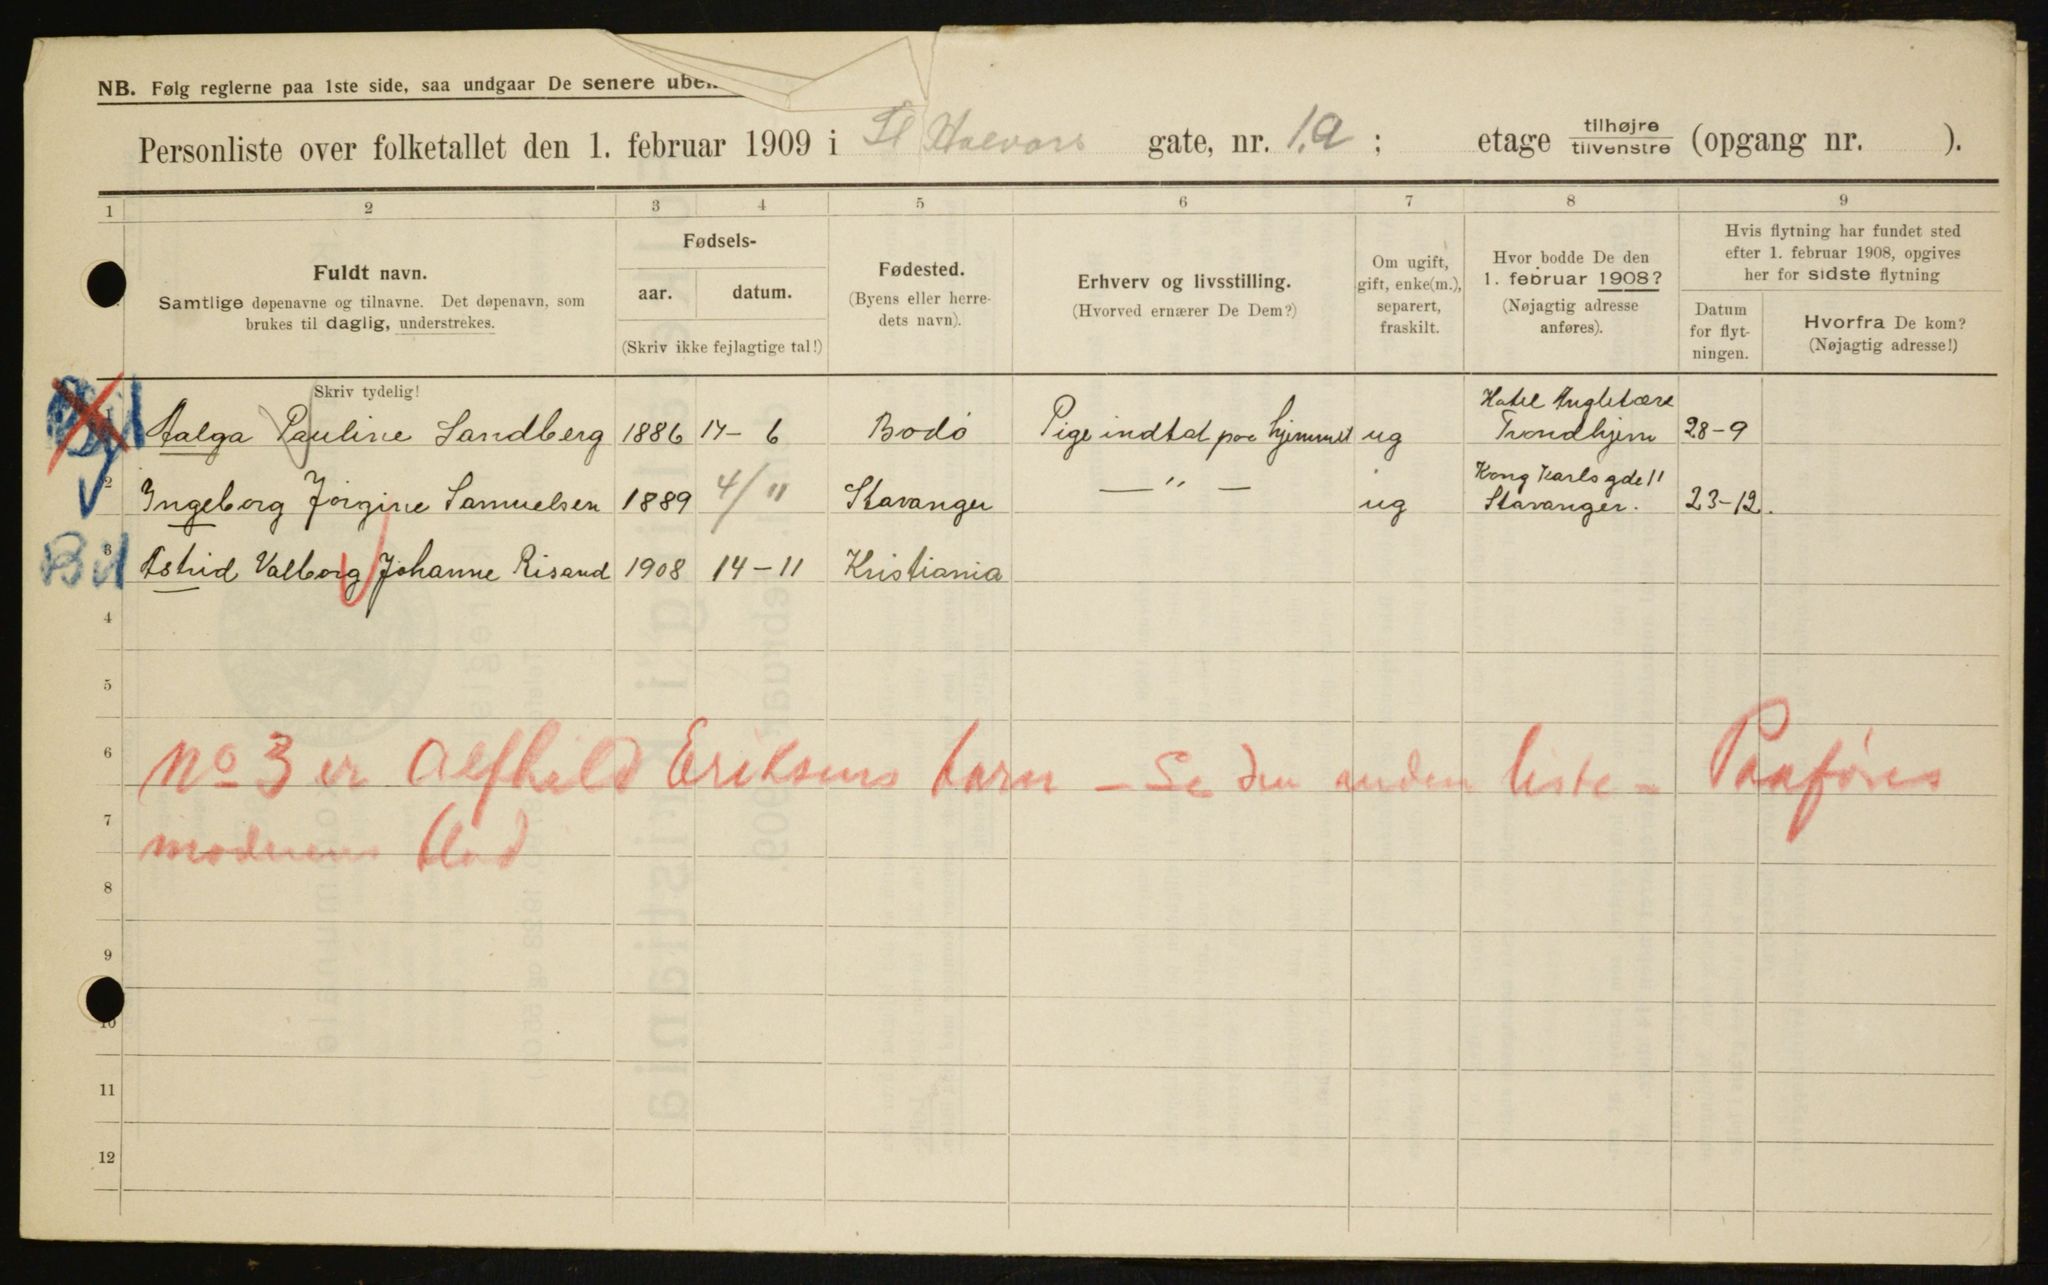 NB. Følg reglerne paa 1ste side, saa undgaar De senere
Personliste over folketallet den 1. februar 1909 i St Halvors gate, nr. 1a ; etage tilhøjre tilvenstre (opgang nr. ).
1 2 3 4 5 6 7 8 9
Fuldt navn.
Samtlige døpenavne og tilnavne. Det døpenavn, som
brukes til daglig, understrekes.
Fødsels-
aar. datum.
(Skriv ikke fejlagtige tal!)
Fødested.
(Byens eller herre-
dets navn).
Erhverv og livsstilling.
(Hvorved ernærer De Dem?)
Om ugift,
gift, enke(m.),
separert,
fraskilt.
Hvor bodde De den
1. februar 1908?
(Nøjagtig adresse
anføres).
Hvis flytning har fundet sted
efter 1. februar 1908, opgives
her for sidste flytning
Datum
for flyt-
ningen.
Hvorfra De kom?
(Nøjagtig adresse!)
Skriv tydelig!
1 Aalga Pauline Sandberg 1886 17-6 Bodó Pige indtat paa hjemmet ug Hotel Angletære Trondhjem 28-9
2 Ingeborg Jörgine Samuelsen 1889 4/11 Stavanger —"— ug Kong Karls gde 11 Stavanger. 23-12.
Bil 3 Astrid Valborg Johanne Risand 1908 14-11 Kristiania
4
5
6
No 3 er Alfhild Eriksens barn - Se den anden liste - Paaføres
7
moderens blad
8
9
10
11
12